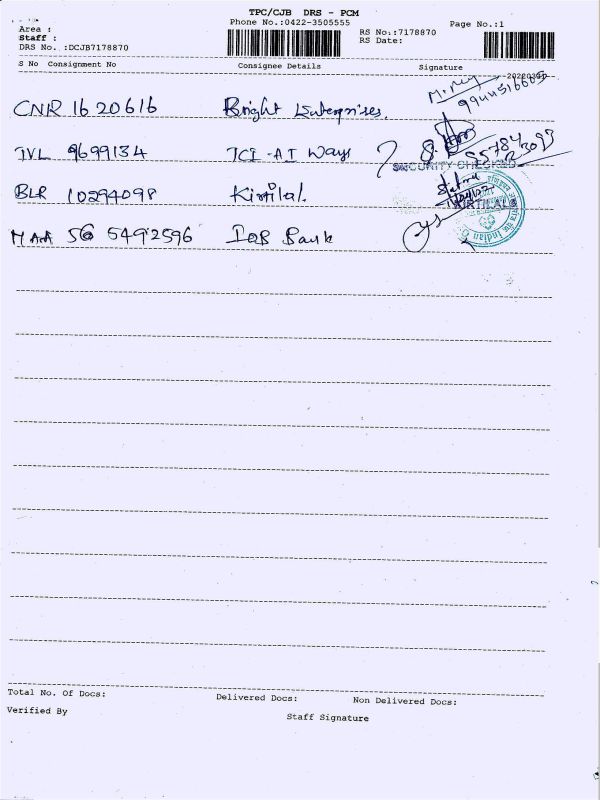 TPC/CJB DRS - PCM
Area : Phone No.:0422-3505555 Page No.:1
Staff : RS No.:7178870
DRS No. :DCJB7178870 RS Date:
S No Consignment No Consignee Details Signature
CNR 1620616 Bright Enterprises.
TVL 9699134 TCI-AI Ways
SECURITY CHECKED
BLR 10294098 Kirtilal.
KIRTILALS
MAA 56 5492596 IOB Bank
Indian
Total No. Of Docs: Delivered Docs: Non Delivered Docs:
Verified By Staff Signature